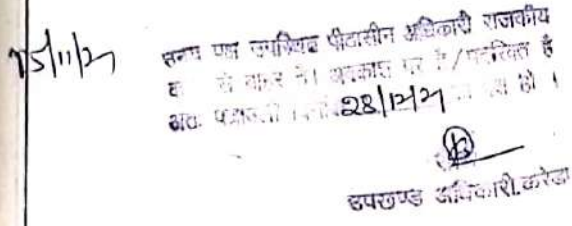 15/11/21 पक्ष उपस्थित पीठासीन अधिकारी राजकीय
से बाहर है। अवकाश पर है / है
अतः पत्रावली 28/12/21 पेश हो ।
उपखण्ड अधिकारी, करेडा